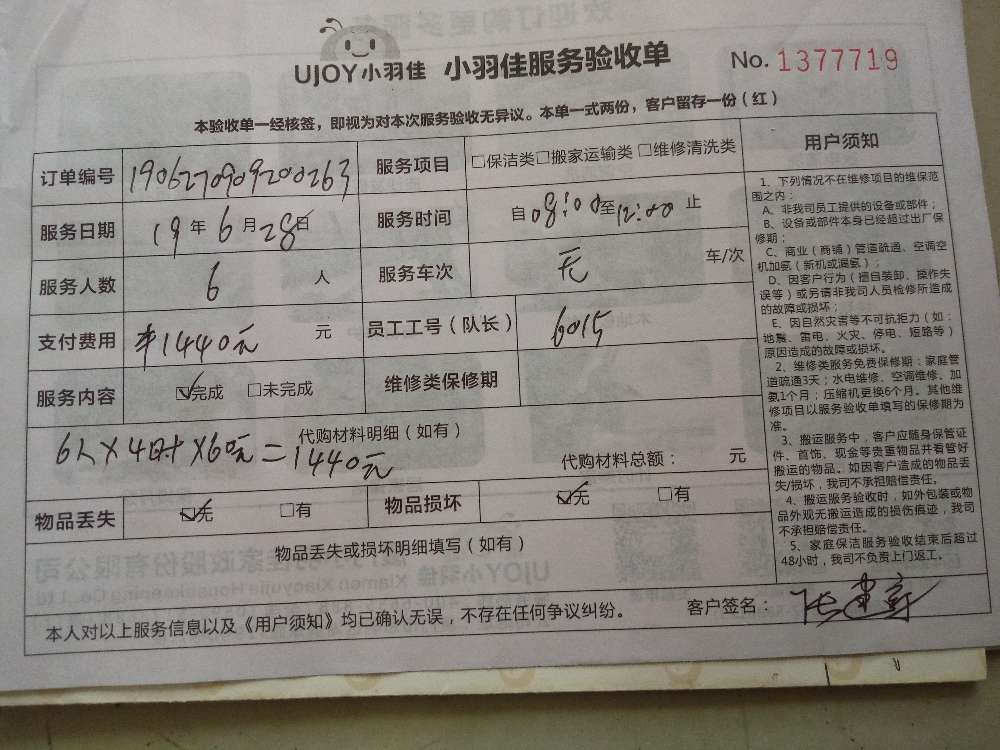 UJOY小羽佳 小羽佳服务验收单 No. 1377719
本验收单一经核签，即视为对本次服务验收无异议。本单一式两份，客户留存一份（红）
订单编号 1906270909200263 服务项目 □保洁类□搬家运输类 □维修清洗类
服务日期 19年6月28日 服务时间 自08:00至12:00止
服务人数 6 人 服务车次 无 车/次
支付费用 ¥1440元 元 员工工号（队长） 6015
服务内容 ☑完成 □未完成 维修类保修期
代购材料明细（如有）
6人×4时×60元=1440元
代购材料总额： 元
物品丢失 ☑无 □有 物品损坏 ☑无 □有
物品丢失或损坏明细填写（如有）
本人对以上服务信息以及《用户须知》均已确认无误，不存在任何争议纠纷。 客户签名：
用户须知
1、下列情况不在维修项目的维保范
围之内：
A、非我司员工提供的设备或部件；
B、设备或部件本身已经超过出厂保
修期；
C、商业（商铺）管道疏通、空调空
机加氨（新机或漏氨）；
D、因客户行为（擅自装卸、操作失
误等）或另请非我司人员检修所造成
的故障或损坏；
E、因自然灾害等不可抗拒力（如：
地震、雷电、火灾、停电、短路等）
原因造成的故障或损坏。
2、维修类服务免费保修期：家庭管
道疏通3天；水电维修、空调维修、加
氨1个月；压缩机更换6个月。其他维
修项目以服务验收单填写的保修期为
准。
3、搬运服务中，客户应随身保管证
件、首饰、现金等贵重物品并看管好
搬运的物品。如因客户造成的物品丢
失/损坏，我司不承担赔偿责任。
4、搬运服务验收时，如外包装或物
品外观无搬运造成的损伤痕迹，我司
不承担赔偿责任。
5、家庭保洁服务验收结束后超过
48小时，我司不负责上门返工。